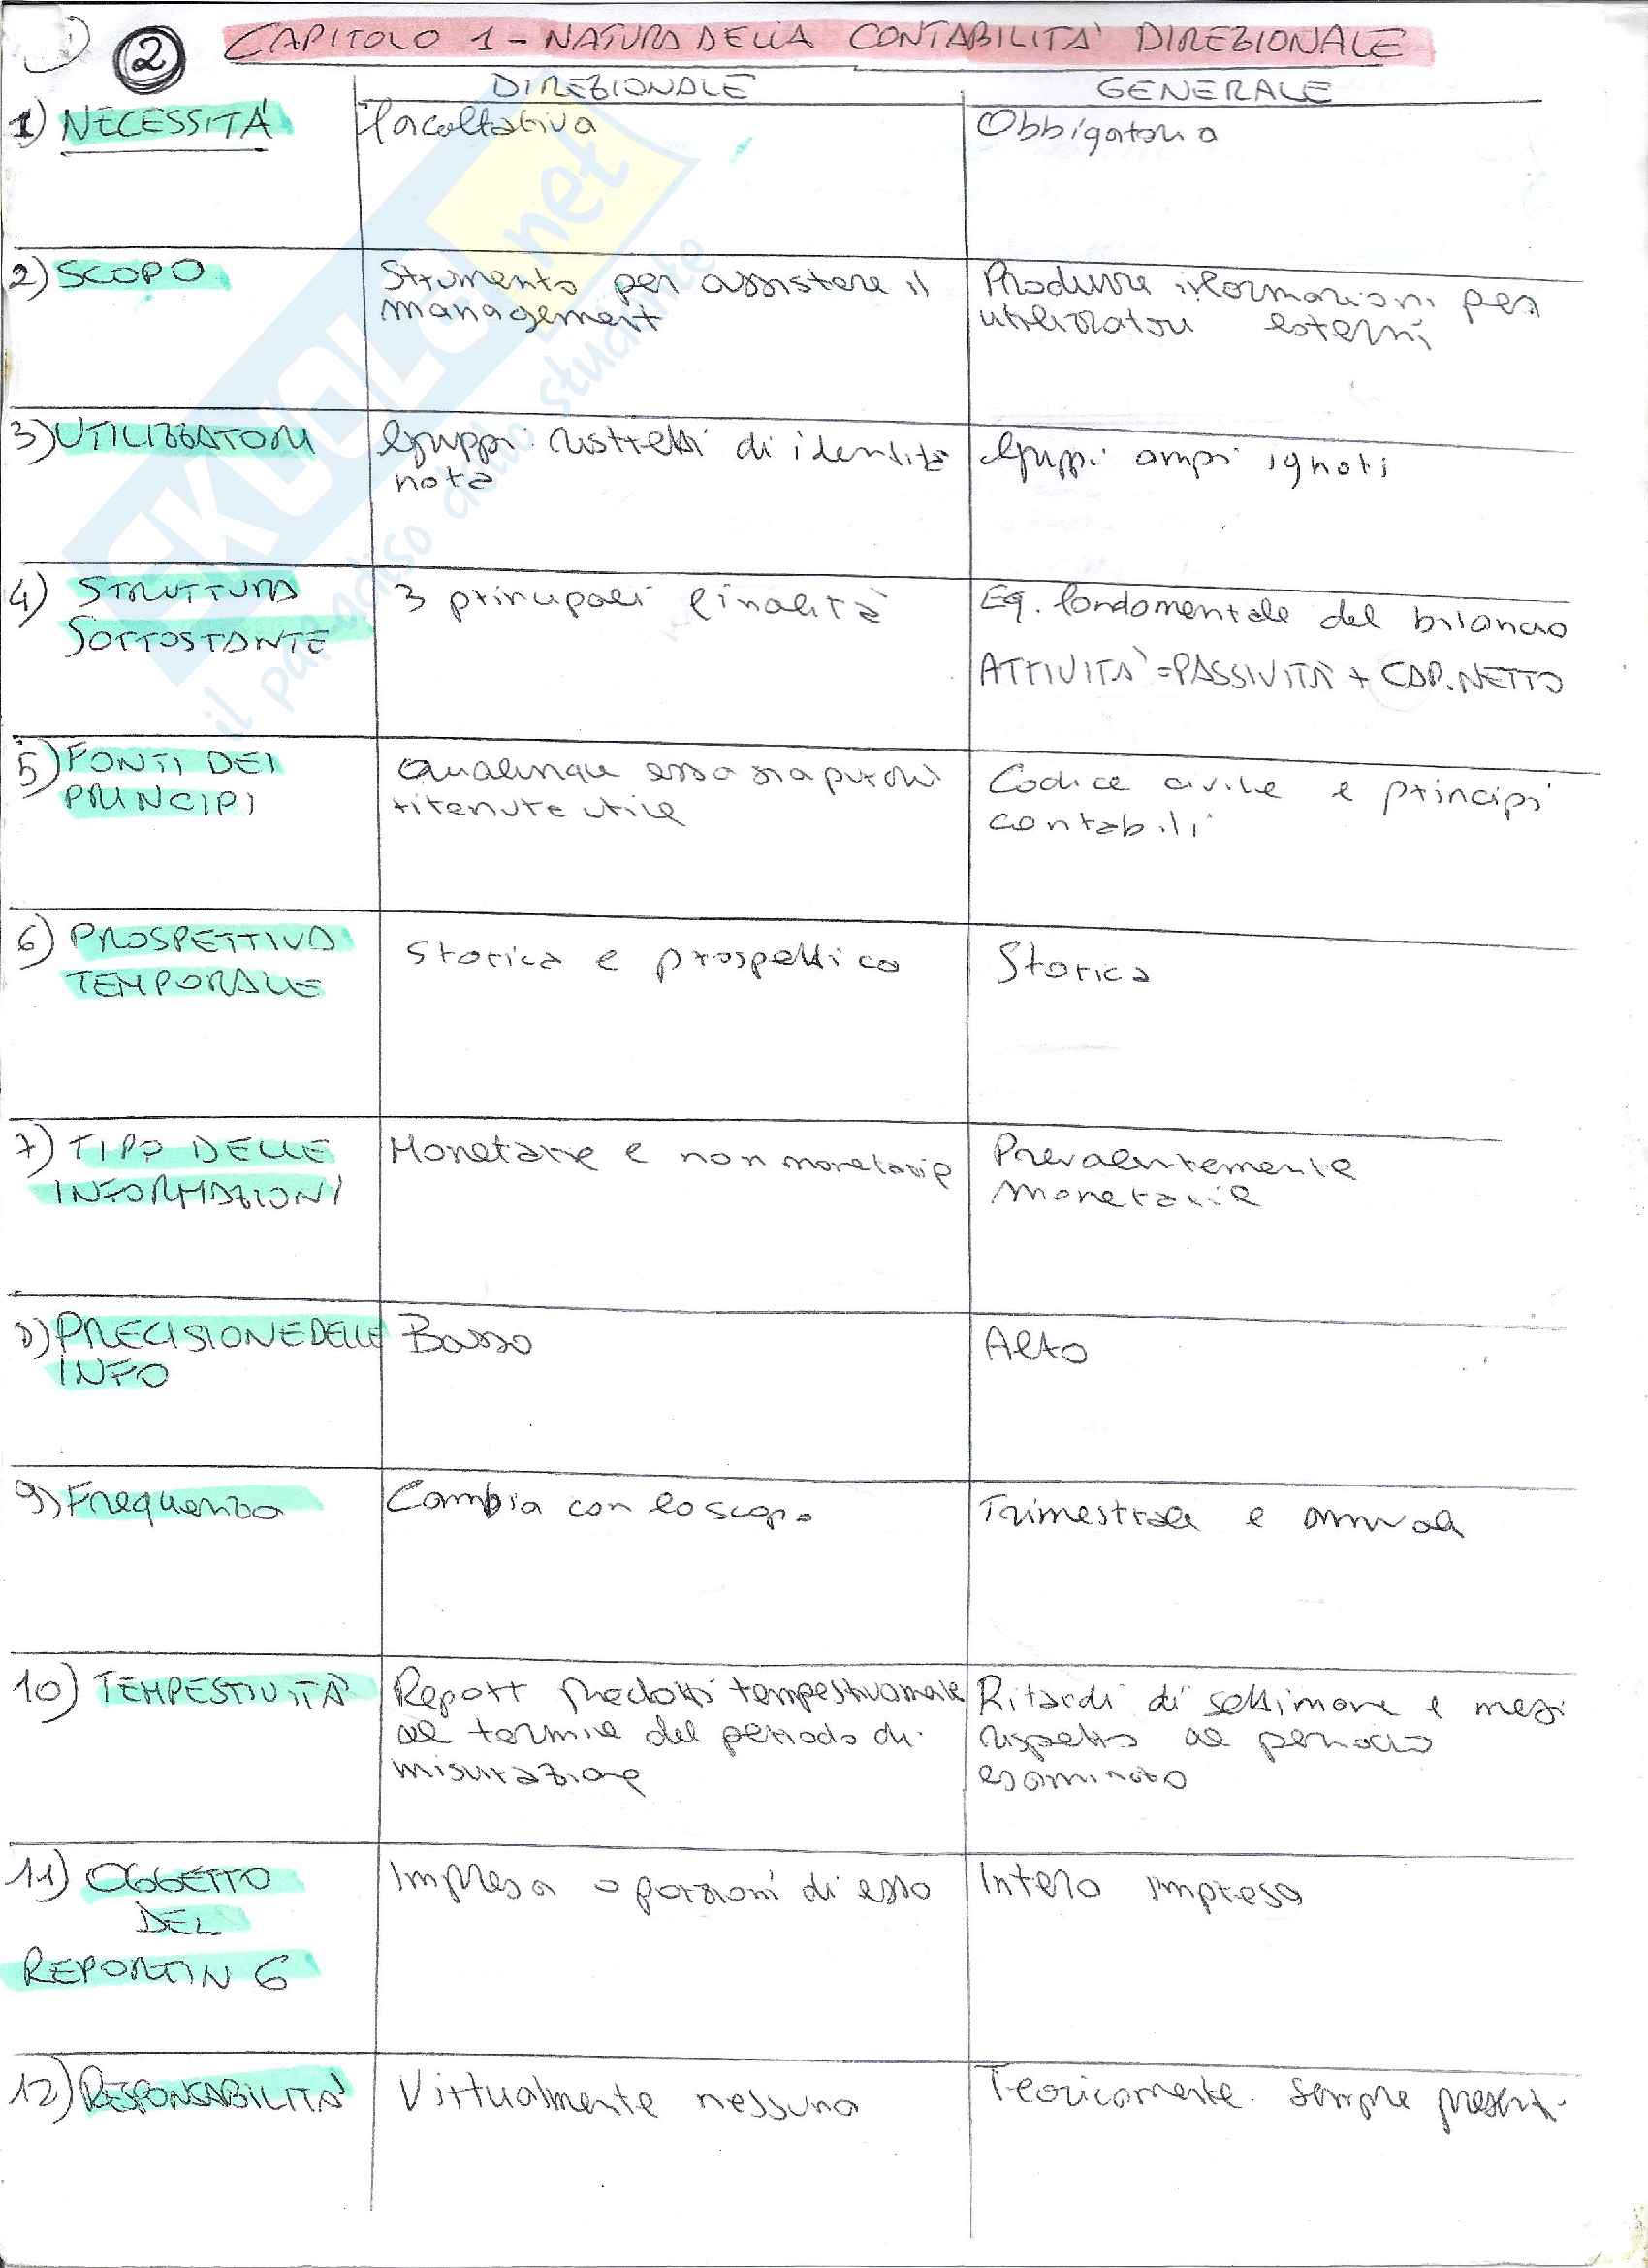 2 CAPITOLO 1 - NATURA DELLA CONTABILITA' DIREZIONALE
DIREZIONALE GENERALE
1) NECESSITÀ facoltativa Obbligatoria
2) SCOPO Strumento per assistere il Produrre informazioni per
management utilizzatori esterni
3) UTILIZZATORI Gruppi ristretti di identità Gruppi ampi ignoti
nota
4) STRUTTURA 3 principali finalità Eq. fondamentale del bilancio
SOTTOSTANTE ATTIVITA'=PASSIVITÀ + CAP.NETTO
5) FONTI DEI Qualunque essa sia purché Codice civile e principi
PRINCIPI ritenute utile contabili
6) PROSPETTIVA Storica e prospettica Storica
TEMPORALE
7) TIPO DELLE Monetarie e non monetarie Prevalentemente
INFORMAZIONI monetarie
8) PRECISIONE DELLE Basso Alto
INFO
9) Frequenza Cambia con lo scopo Trimestrale e annuale
10) TEMPESTIVITÀ Report prodotti tempestivamente Ritardi di settimane e mesi
al termine del periodo di rispetto al periodo
misurazione esaminato
11) OGGETTO Impresa o porzioni di essa Intera impresa
DEL
REPORTING
12) RESPONSABILITÀ Virtualmente nessuna Teoricamente sempre present.
SKUOLA.net
il paradiso dello studente